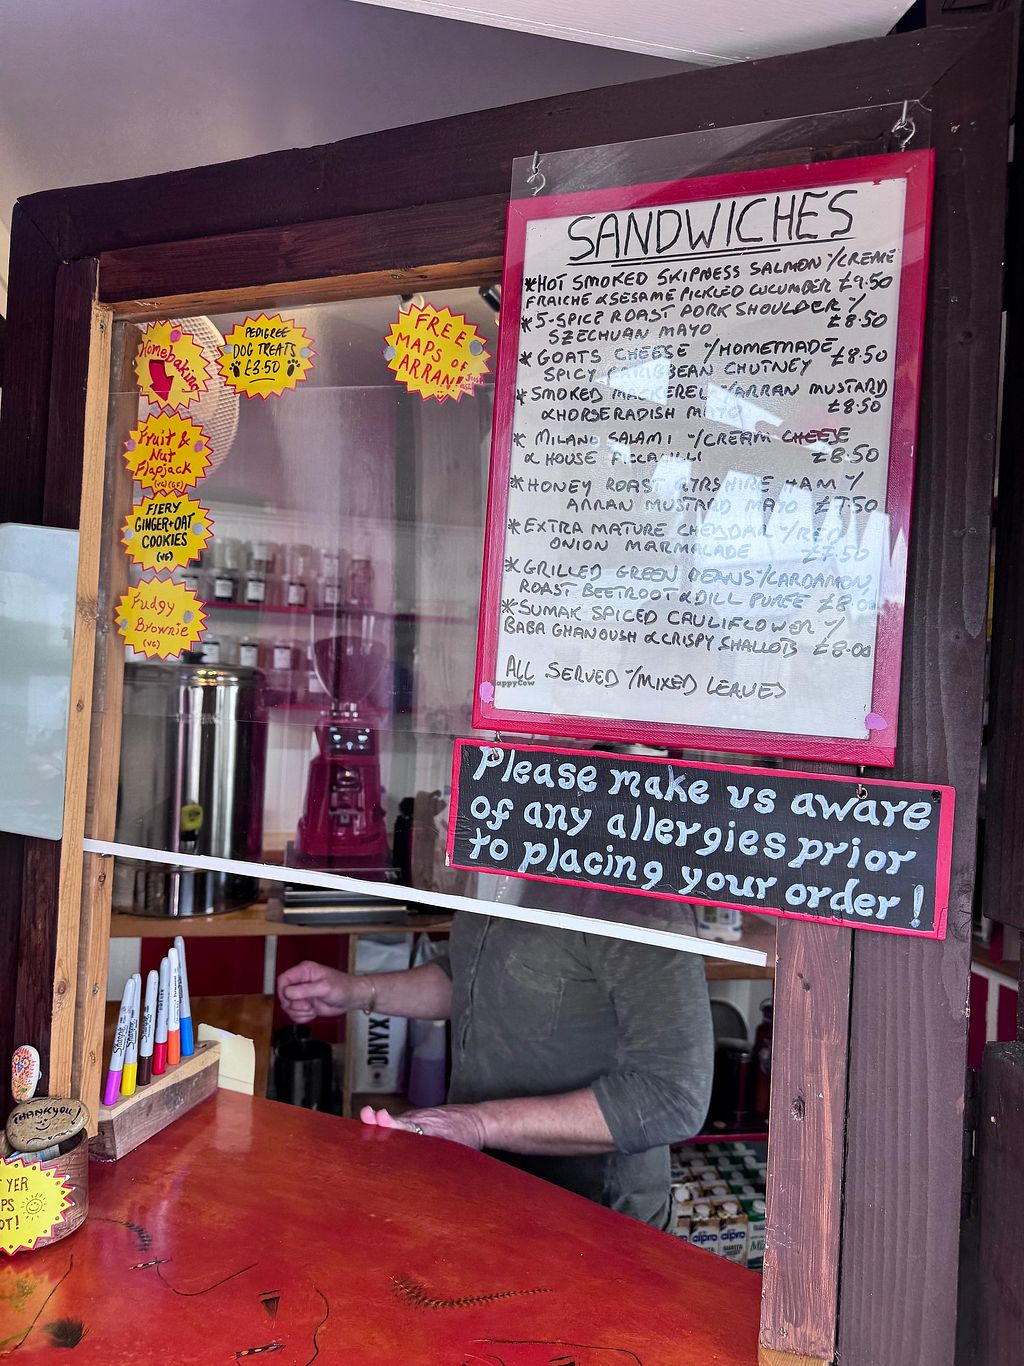 SANDWICHES
*HOT SMOKED SKIPNESS SALMON /CRÈME
FRAICHE & SESAME PICKLED CUCUMBER £9.50
*5-SPICE ROAST PORK SHOULDER /
SZECHUAN MAYO £8.50
*GOATS CHEESE /HOMEMADE
SPICY CARIBBEAN CHUTNEY £8.50
*SMOKED MACKEREL /ARRAN MUSTARD
& HORSERADISH MAYO £8.50
* MILANO SALAMI /CREAM CHEESE
& HOUSE PICCALILLI £8.50
*HONEY ROAST AYRSHIRE HAM /
ARRAN MUSTARD MAYO £7.50
*EXTRA MATURE CHEDDAR /RED
ONION MARMALADE £7.50
*GRILLED GREEN BEANS /CARDAMON
ROAST BEETROOT & DILL PUREE £8.00
*SUMAK SPICED CAULIFLOWER /
BABA GHANOUSH & CRISPY SHALLOTS £8.00
ALL SERVED /MIXED LEAVES
HappyCow
Please make us aware
of any allergies prior
to placing your order!
Homebaking
PEDIGREE
DOG TREATS
£3.50
FREE
MAPS OF
ARRAN!
Fruit &
Nut
Flapjack
(VG)(GF)
FIERY
GINGER+OAT
COOKIES
(VG)
Fudgy
Brownie
(VG)
Sharpie
ONYX
THANKYOU
YER
PS
OT!
alpro
alpro